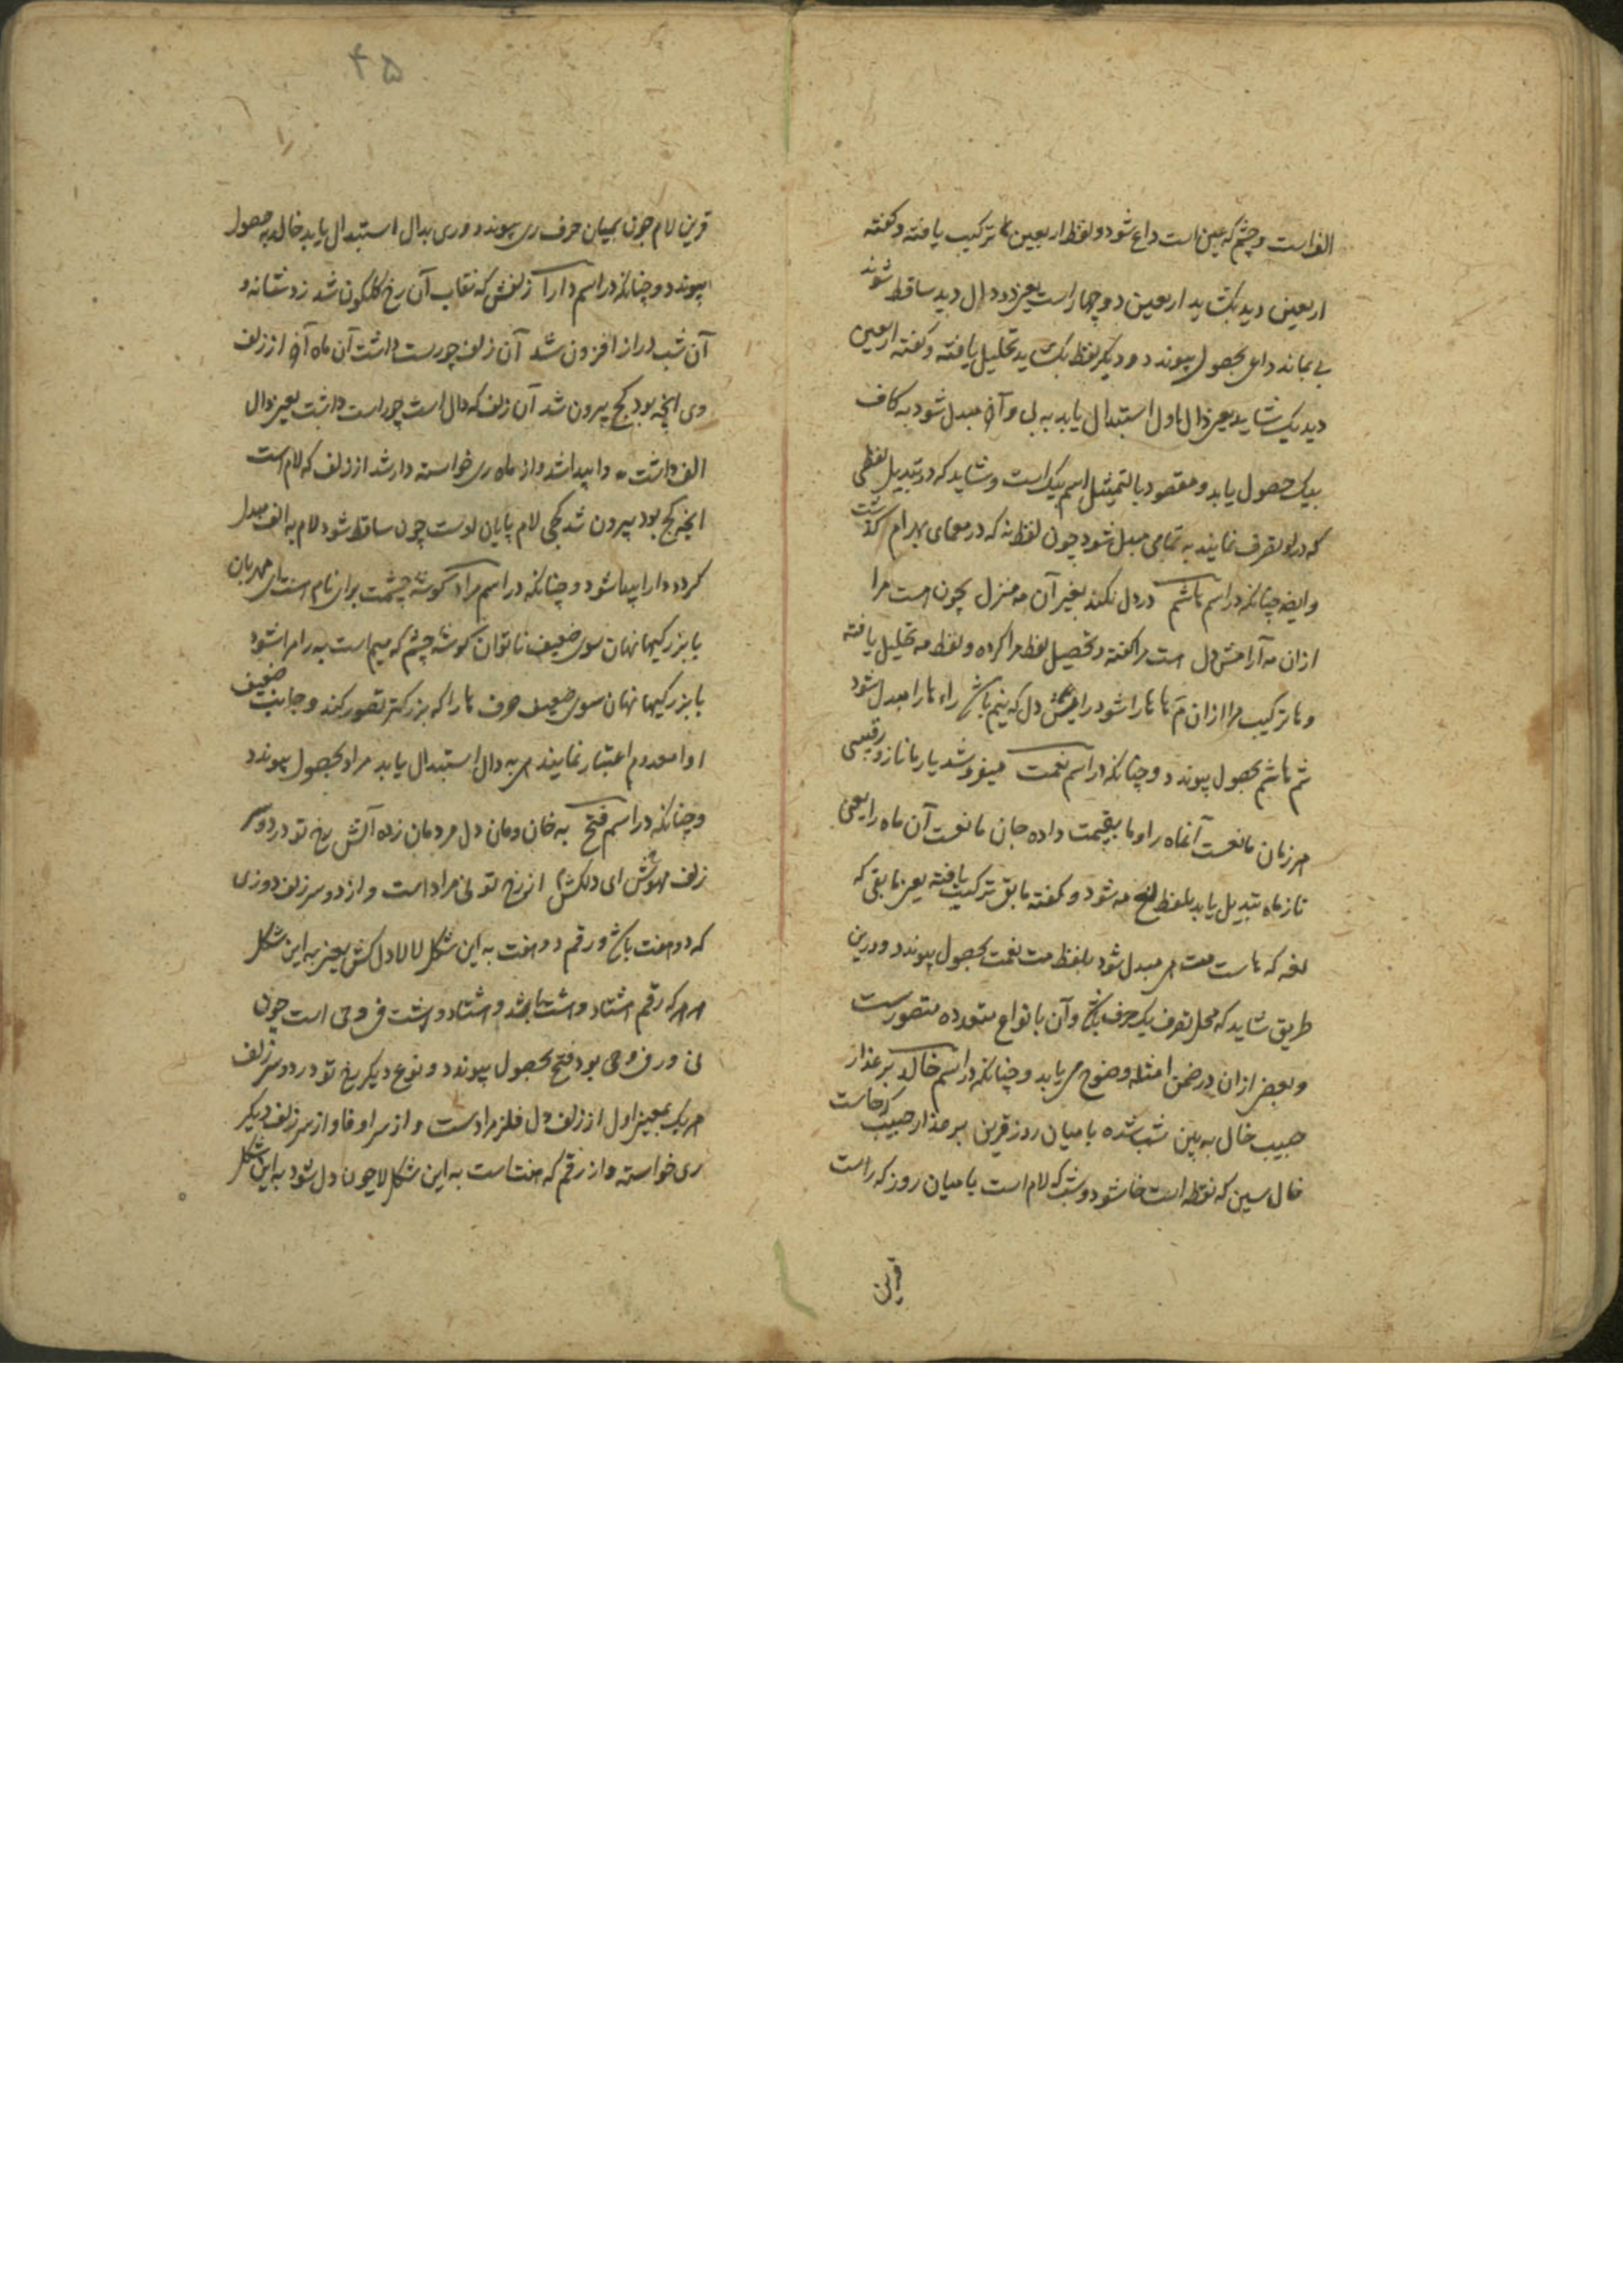 الف است و چشم که عین است داع شود و لفظ اربعین ترکیب یافته و کفته
اربعین دید بکشاید اربعین دو چهار است یعنی دو دال دید ساقط شوند
بی بماند داعی بحصول پیوندد و دیکر لفظ بکشاید تحلیل یافته و کفته اربعین
دید یک شاید یعنی دال اول استبدال یابد به لی و آخر مبدل شود به کاف
بیک حصول یابد و مقصود بالتمثیل اسم بیک است و شاید که در تبدیل لفظی
که در او تصرف نمایند به تمامی مبدل شود چون لفظ نه که در معمای بهرام کذشت
و ایضا چنانکه در اسم هاشم در دل نکند بغیر آن مه منزل چون هست مرا
ازان مه آرامش دل است مرا کفته و تحصیل لفظ مرا کرده و لفظ مه تحلیل یافته
و ها ترکیب مرا ازان م ها هارا شود رامش دل که شم باشد راء هارا مبدل شود
شم هاشم بحصول پیوندد و چنانکه در اسم نعمت میفروشد یار ما ناز و رقیبی
هر زمان مانعست آنماه را و ما بقیمت داده جان مانعست آن ماه را یعنی
ناز ماه تبدیل یابد بلفظ مه شود و کفته مابقی ترکیب یافته یعنی مابقی که
لفه که هاست مت هر مبدل شود بلفظ مت نعمت بحصول پیوندد و درین
طریق شاید که محل تصرف یک حرف باشد و آن بانواع متعدده متصورست
و بعضی ازان در ضمن امثله وضوح می یابد و چنانکه در اسم خالد بر عذار
حبیب خال به بین شب شده با میان روز قرین بر عذار حبیب که حاست
خال سین که نقطه است خا شود و شب که لام است یا میان روز که راست
قرین
۴۵
قرین لام چون بمیان حرف ری پیوندد و ری بدال استبدال یابد خالد بحصول
پیوندد و چنانکه در اسم دارا زلفش که نقاب آن رخ کلکون شد زد شانه و
آن شب دراز افزون شد آن زلف چو راست داشت آن ماه آخر از زلف
وی انچه بود کج بیرون شد آن زلف که دال است چو راست داشت یعنی دال
الف داشت دا پیدا شد و از ماه ری خواسته دار شد از زلف که لام است
انچه کج بود بیرون شد کجی لام پایان اوست چون ساقط شود لام به الف مبدل
کردد دارا پیدا شود و چنانکه در اسم مراد کوشه چشمت برای نام است ای مهربان
با بزرکیها نهان سوی ضعیف ناتوان کوشه چشم که میم است به را مر شود
با بزرکیها نهان سوی ضعیف حرف ها را که بزرکتر تصور کنند و جانب ضعیف
او را معدوم اعتبار نمایند هر به دال استبدال یابد مراد بحصول پیوندد
و چنانکه در اسم فتح به خان ومان دل مردمان زده آتش رخ تو در دو سر
زلف مهوش ای دلکش از رخ تو تی مراد است و از دو سر زلف دو زی
که دو هفت باشد و رقم دو هفت به این شکل لالا دل کش یعنی به این شکل
که رقم هشتاد و هشت باشد و هشتاد و هشت ف و حی است چون
تی در ف و حی بود فتح بحصول پیوندد و نوع دیکر رخ تو در دو سر زلف
هر یک بمعینی اول از زلف دل فلز مرادست و از سر او فا و از سر زلف دیکر
ری خواسته و از رقم که هفتاست به این شکل لا چون دل شود به این شکل